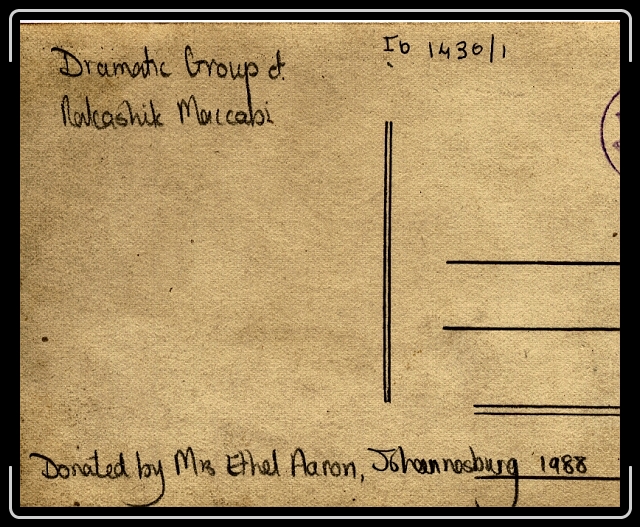 Ib 1436/1
Dramatic Group of
Rakashik Maccabi
Donated by Mrs Ethel Aaron, Johannesburg 1988